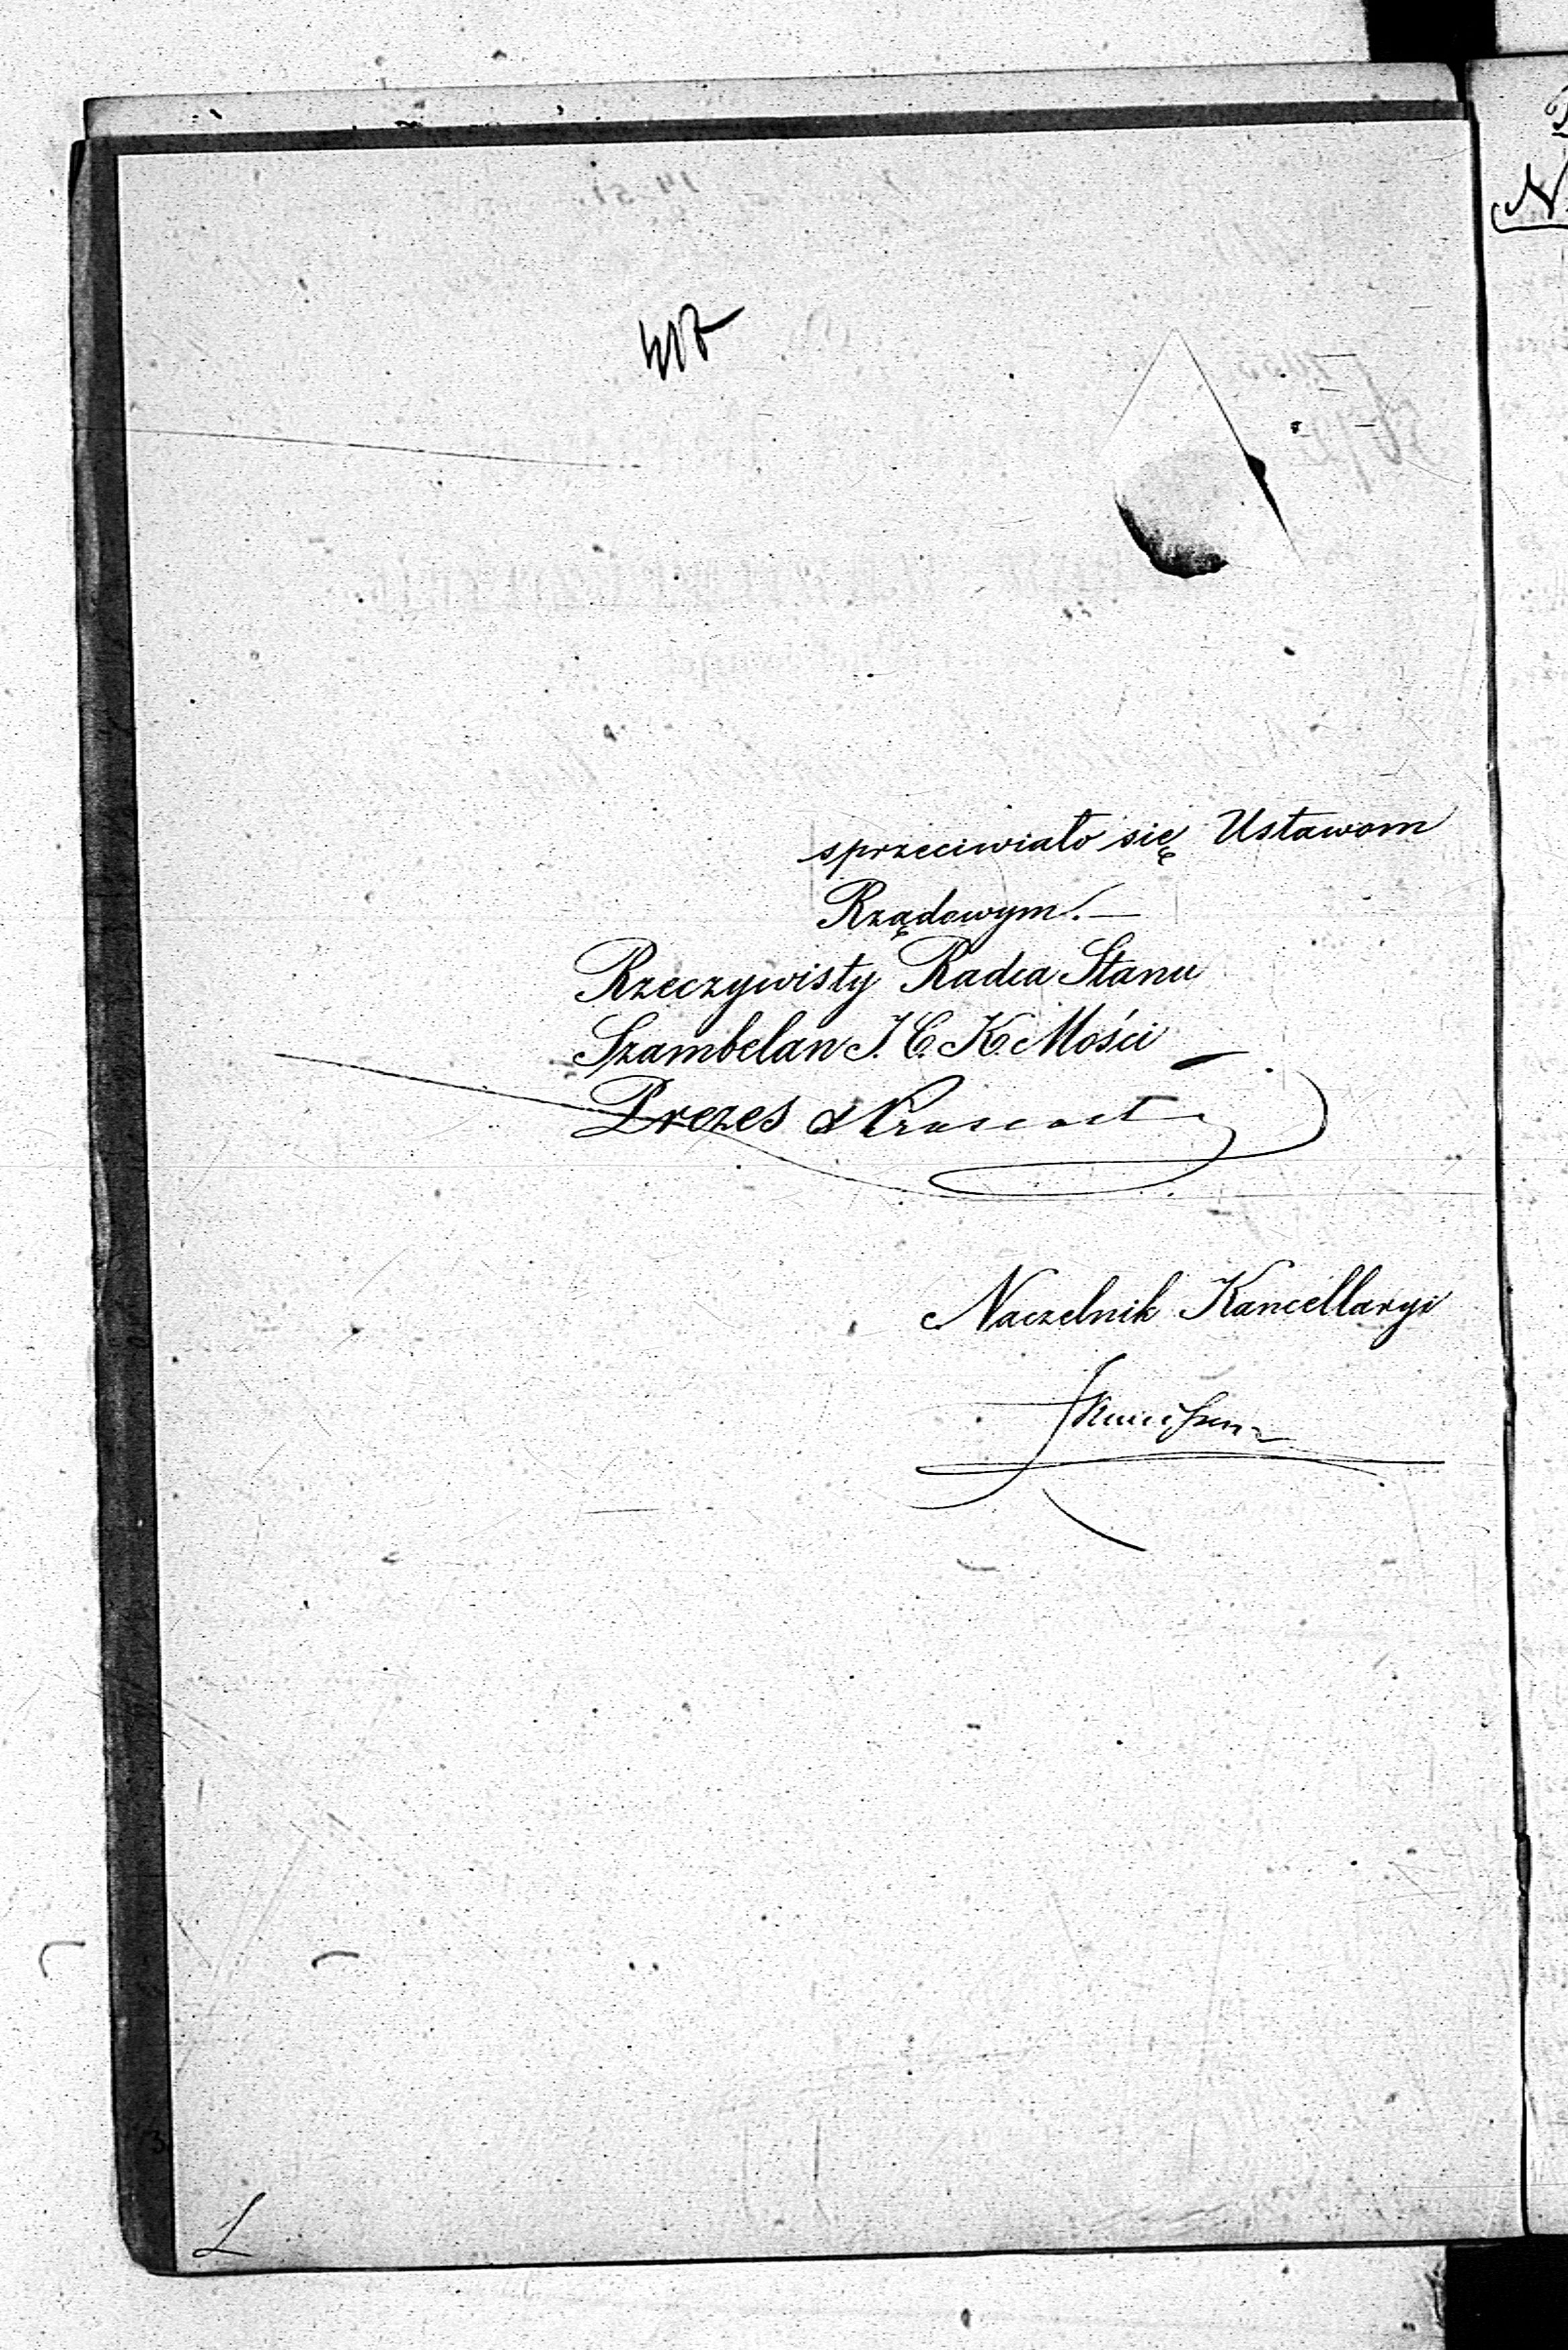 sprzeciwiało się Ustawom
Rządowym. —
Rzeczywisty Radca Stanu
Szambelan J. C. K. Mości
Prezes
Naczelnik Kancellaryi
L